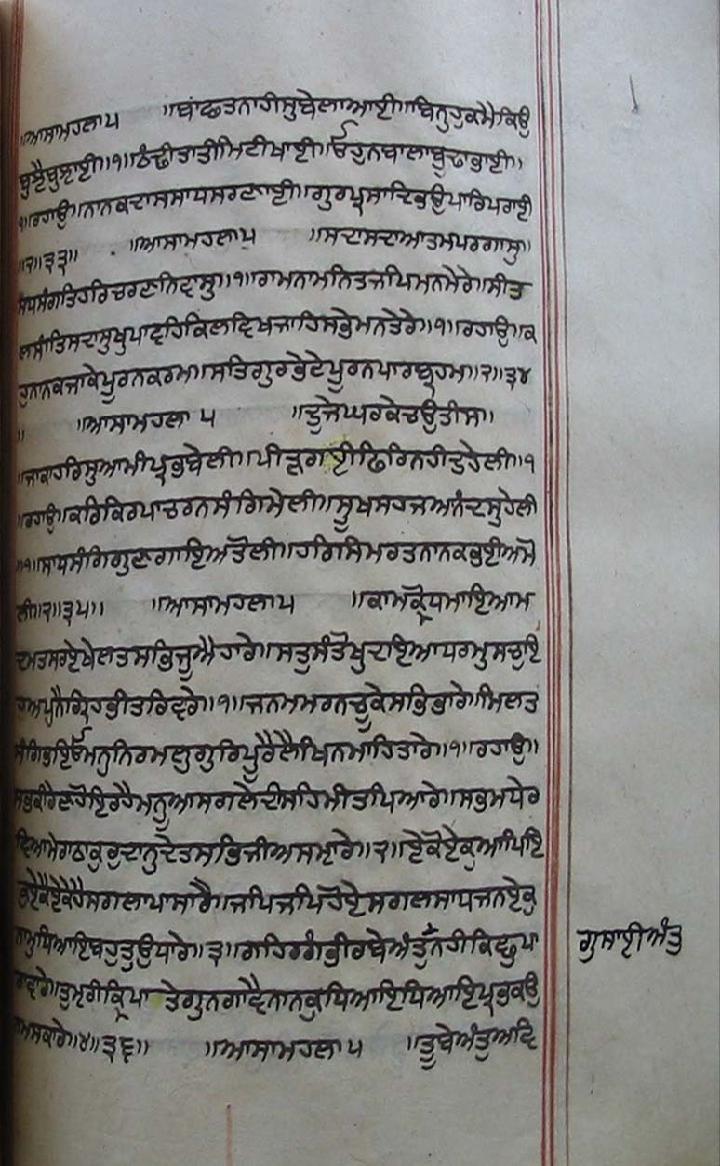 ॥ਆਸਾਮਹਲਾ੫ ॥ਬਾਛਤਨਾਹੀਸੁਬੇਲਾਆਈ॥ਬਿਨੁਹੁਕਮੈਕਿਉ
ਬੁਝੈਬੁਝਾਈ॥੧॥ਠੰਢੀਤਾਤੀਮਿਟੀਖਾਈ॥ਓਹੁਨਬਾਲਾਬੂਢਾਭਾਈ॥
੧॥ਰਹਾਉ॥ਨਾਨਕਦਾਸਸਾਧਸਰਣਾਈ॥ਗੁਰਪ੍ਰਸਾਦਿਭਉਪਾਰਿਪਰਾਈ
॥੨॥੩੩॥ ॥ਆਸਾਮਹਲਾ੫ ॥ਸਦਾਸਦਾਆਤਮਪਰਗਾਸੁ॥
ਸਾਧਸੰਗਤਿਹਰਿਚਰਣਨਿਵਾਸੁ॥੧॥ਰਾਮਨਾਮਨਿਤਜਪਿਮਨਮੇਰੇ॥ਸੀਤ
ਲਸਾਂਤਿਸਦਾਸੁਖੁਪਾਵਹਿਕਿਲਵਿਖਜਾਹਿਸਭੇਮਨਤੇਰੇ॥੧॥ਰਹਾਉ॥ਕ
ਹੁਨਾਨਕਜਾਕੇਪੂਰਨਕਰਮ॥ਸਤਿਗੁਰਭੇਟੇਪੂਰਨਪਾਰਬ੍ਰਹਮ॥੨॥੩੪
॥ ॥ਆਸਾਮਹਲਾ ੫ ॥ਦੂਜੇਘਰਕੇਚਉਤੀਸ॥
॥ਜਾਕਾਹਰਿਸੁਆਮੀਪ੍ਰਭੁਬੇਲੀ॥ਪੀੜਗਈਫਿਰਿਨਹੀਦੁਹੇਲੀ॥੧
॥ਰਹਾਉ॥ਕਰਿਕਿਰਪਾਚਰਨਸੰਗਿਮੇਲੀ॥ਸੂਖਸਹਜਅਨੰਦਸੁਹੇਲੀ
॥੧॥ਸਾਧਸੰਗਿਗੁਣਗਾਇਅਤੋਲੀ॥ਹਰਿਸਿਮਰਤਨਾਨਕਭਈਅਮੋ
ਲੀ॥੨॥੩੫॥ ॥ਆਸਾਮਹਲਾ੫ ॥ਕਾਮਕ੍ਰੋਧਮਾਇਆਮ
ਦਮਤਸਰਏਖੇਲਤਸਭਿਜੂਐਹਾਰੇ॥ਸਤੁਸੰਤੋਖੁਦਇਆਧਰਮੁਸਚੁਇ
ਹਅਪੁਨੈਗ੍ਰਿਹਭੀਤਰਿਵਾਰੇ॥੧॥ਜਨਮਮਰਨਚੂਕੇਸਭਿਭਾਰੇ॥ਮਿਲਤ
ਸੰਗਿਭਇਓਮਨੁਨਿਰਮਲੁਗੁਰਿਪੂਰੈਲੈਖਿਨਮਾਹਿਤਾਰੇ॥੧॥ਰਹਾਉ॥
ਸਭਕੀਰੇਣਹੋਇਰਹੈਮਨੂਆਸਗਲੇਦੀਸਹਿਮੀਤਪਿਆਰੇ॥ਸਭਮਧੇਰ
ਵਿਆਮੇਰਾਠਾਕੁਰੁਦਾਨੁਦੇਤਸਭਿਜੀਅਸਮ੍ਹਾਰੇ॥੨॥ਏਕੋਏਕੁਆਪਿਇ
ਕੁਏਕੈਏਕੈਹੈਸਗਲਾਪਾਸਾਰੈ॥ਜਪਿਜਪਿਹੋਏਸਗਲਸਾਧਜਨਏਕੁ
ਨਾਮੁਧਿਆਇਬਹੁਤੁਉਧਾਰੇ॥੩॥ਗਹਿਰਗੰਭੀਰਬੇਅੰਤੁਨਹੀਕਿਛੁਪਾ
ਰਾਵਾਰੇ॥ਤੁਮ੍ਹਰੀਕ੍ਰਿਪਾ ਤੇਗੁਨਗਾਵੈਨਾਨਕੁਧਿਆਇਧਿਆਇਪ੍ਰਭਕਉ
ਨਮਸਕਾਰੇ॥੪॥੩੬॥ ॥ਆਸਾਮਹਲਾ੫ ॥ਤੂਬੇਅੰਤੁਅਵਿ
ਗੁਸਾਈਅੰਤੁ